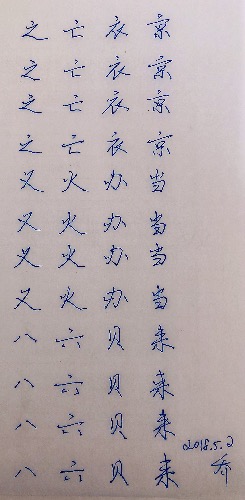 之 亡 衣 京
之 亡 衣 京
之 亡 衣 京
之 亡 衣 京
又 火 办 当
又 火 办 当
又 火 办 当
又 火 办 当
八 六 贝 来
八 六 贝 来
八 六 贝 来
八 六 贝 来
2018.5.2
乔